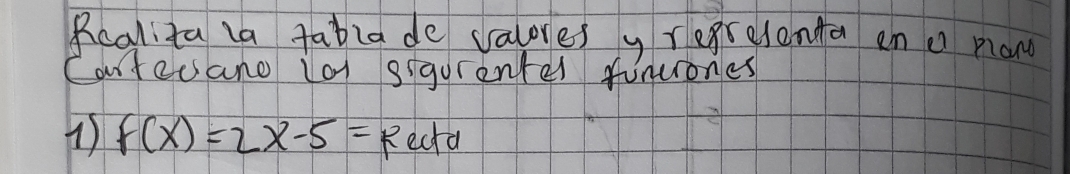 Realiza la tabla de valores y representa en el plano
Cartesiano las siguientes funciones
1) f(x) = 2x-5 = Recta